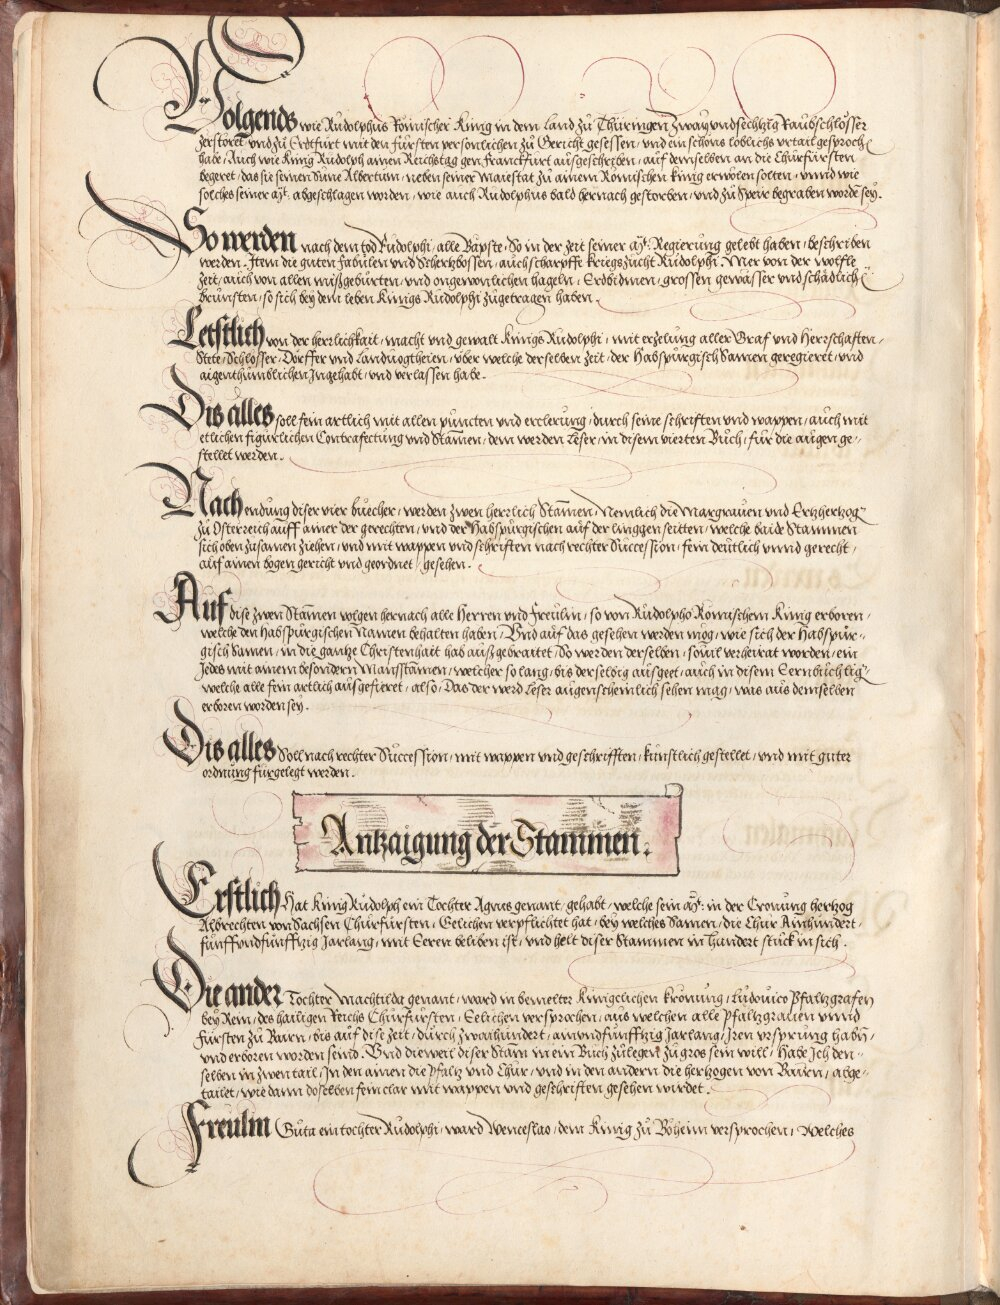 Volgends wie Rudolphus Römischer Künig in dem Land zu Thüringen zwayundsechtzig Raubschlösser
zerstöret und zu Erdtfurt mit den fürsten personlichen zu Gericht gesessen / und ein schöns löblichs urtail gesproch
habe / Auch wie Künig Rudolph ainen Reichstag gen Franckfurt ausgeschriben / auf demselben an die Churfürsten
begeret / das sie seinen Süne Albertum / neben seiner Maiestat zu ainem Römischen künig erwölen solten / unnd wie
solches seiner Mt: abgeschlagen worden / wie auch Rudolphus bald hernach gestorben / und zu Speir begraben worde sey.
So werden nach dem tod Rudolphi / alle Bäpste / So in der zeit seiner Mt: Regierung gelebt haben / beschriben
werden. Item die guten fabulen und Schertzbossen / auch scharpffe kriegszucht Rudolphi. Mer von der wolfle
zeit / auch von allen mißgeburten / und ongewonlichen hageln / Erdbidmen / grossen gewässer und schädlich
brunsten / so sich bey dem leben Künigs Rudolphi zugetragen haben.
Letstlich von der herrlichkait / macht und gewalt Künigs Rudolphi / mit erzelung aller Graf und Herrschaften /
Stete / Schlösser / Dörffer und Landuogtheien / über welche derselben zeit / der Habspurgisch Samen geregieret / und
aigenthumblichen Ingehabt / und verlassen habe.
Dis alles soll fein artlich mit allen puncten und erclerung / durch seine schriften und wappen / auch mit
etlichen figurlichen Contrafectung und Stamen / dem werden Leser / in disem vierten Buch / für die augen ge¬
stellet werden.
Nach endung diser vier buecher / werden zwen herrlich Stamen / Nemlich die Margrauen und Ertzhertzog
zu Osterreich auff ainer der gerechten / und der Habspurgischen auf der lincggen seitten / welche baide Stammen
sich oben zusamen ziehen / und mit wappen und schriften nach rechter Succession / fein deutlich unnd gerecht /
auf ainen bogen gericht und geordnet / gesehen.
Auf dise zwen Stamen volgen hernach alle Herren und Freulin / so von Rudolpho Römischem Künig erboren /
welche den Habspurgischen Namen behalten haben / Und auf das gesehen werden mög / wie sich der Habspur¬
gisch Samen / in die gantze Christenhait hab außgebraitet / So werden derselben / souil verheirat worden / ein
Jedes mit ainem besondern Mansstamen / welcher so lang / bis derselbig ausgeet / auch in disem Eernbuch lig
welche alle fein artlich ausgefüret / also / Das der werd Leser augenscheinlich sehen mag / was aus demselben
erboren worden sey.
Dis alles Soll nach rechter Succession / mit wappen und geschrifften / künstlich gestellet / und mit guter
ordnung fürgelegt werden.
Antzaigung der Stammen.
Erstlich Hat Künig Rudolph ein Tochter Agnes genant / gehabt / welche sein Mt: in der Cronung hertzog
Albrechten von Sachsen Churfürsten / Eelichen verpflichtet hat / bey welches Samen / die Chur Ainhundert /
fünffundfünffzig Jarlang / mit Eeren beliben ist / und helt diser Stammen in hundert stuck in sich.
Die ander Tochter Machtilda genant / ward in bemelter Künigclichen krönung / Ludouico Pfaltzgrafen
bey Rein / des hailigen Reichs Churfürsten / Eelichen versprochen / aus welchen alle Pfaltzgrauen unnd
Fürsten zu Bairn / bis auf dise zeit / durch zwaihundert / ainundfünfftzig Jarlang / Iren ursprung habn /
und erboren worden seind. Und dieweil diser Stam in ein Buch zulegen zu gros sein will / Habe Ich den¬
selben in zwen tail / In den ainen die Pfaltz und Chur / und in den andern die hertzogen von Bairn / abge¬
tailet / wie dann dasselben fein clar mit wappen und geschriften gesehen wirdet.
Freulin Guta ein tochter Rudolphi / ward Wenceslao / dem Künig zu Böheim versprochen / Welches